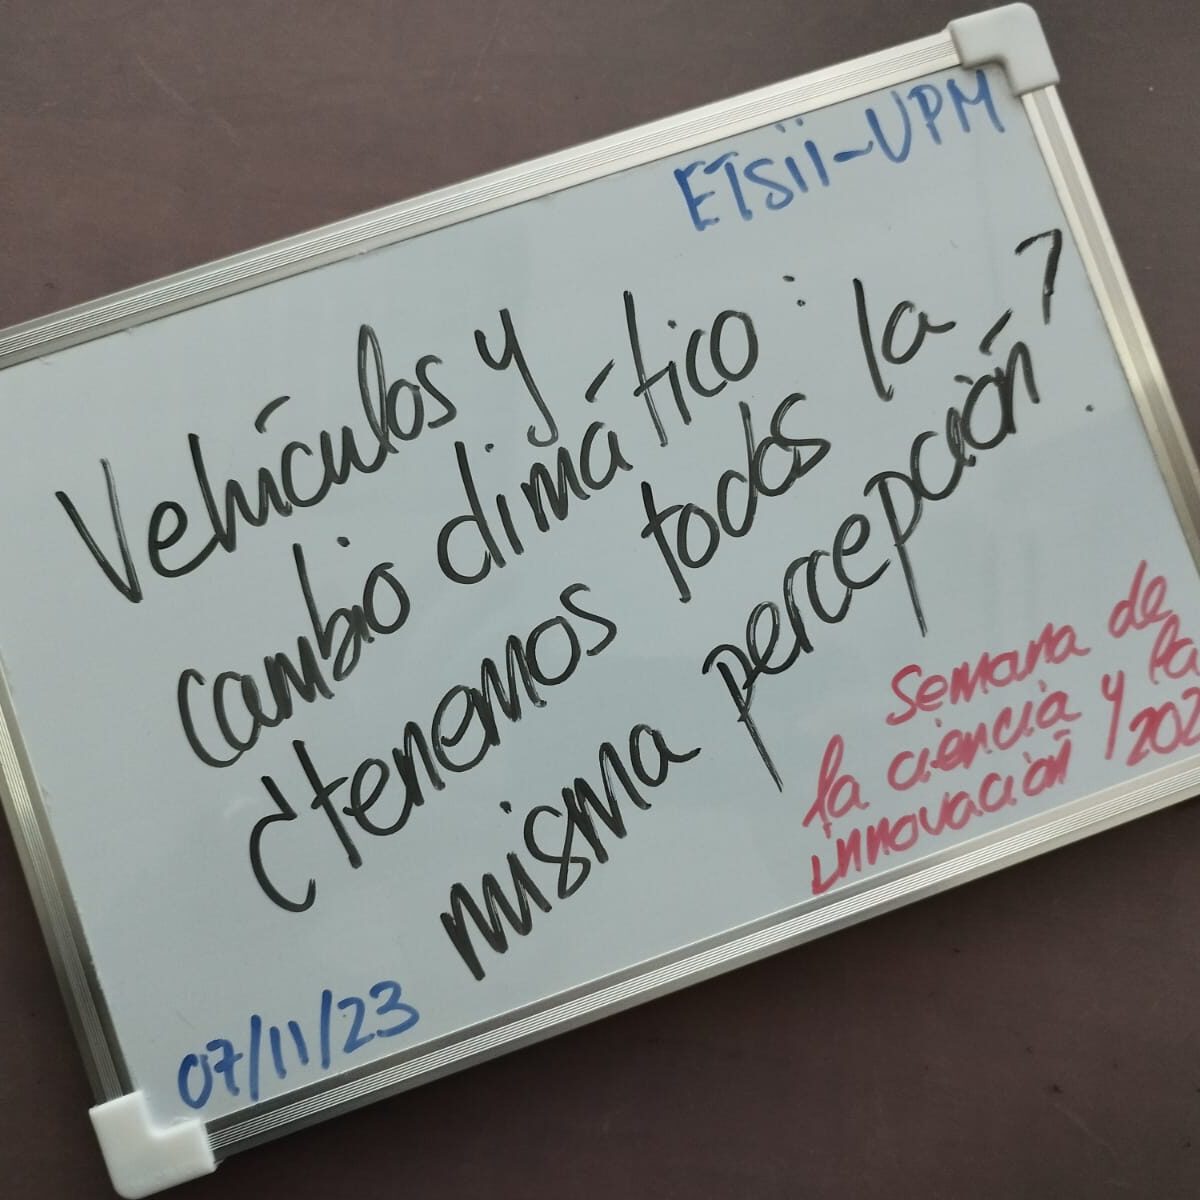 ETSii-UPM
Vehículos y
cambio climático: la
¿tenemos todos la
misma percepción?
Semana de
la ciencia y la
innovación /202
07/11/23